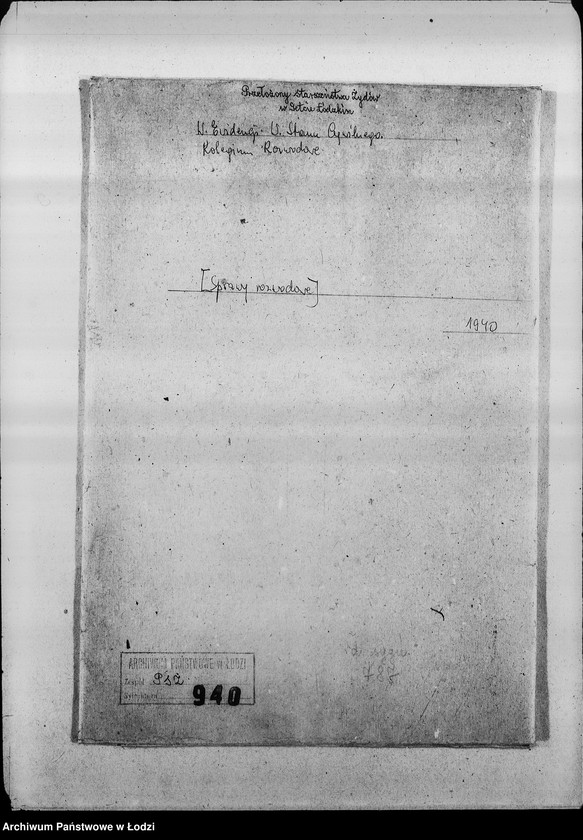 Przełożony Starszeństwa Żydów
w Getcie Łódzkim
W. Ewidencji. U. Stanu Cywilnego.
Kolegium Rozwodowe
[Sprawy rozwodowe]
1940
ARCHIWUM PAŃSTWOWE w ŁODZI
Zespół PSŻ
940
Archiwum Państwowe w Łodzi